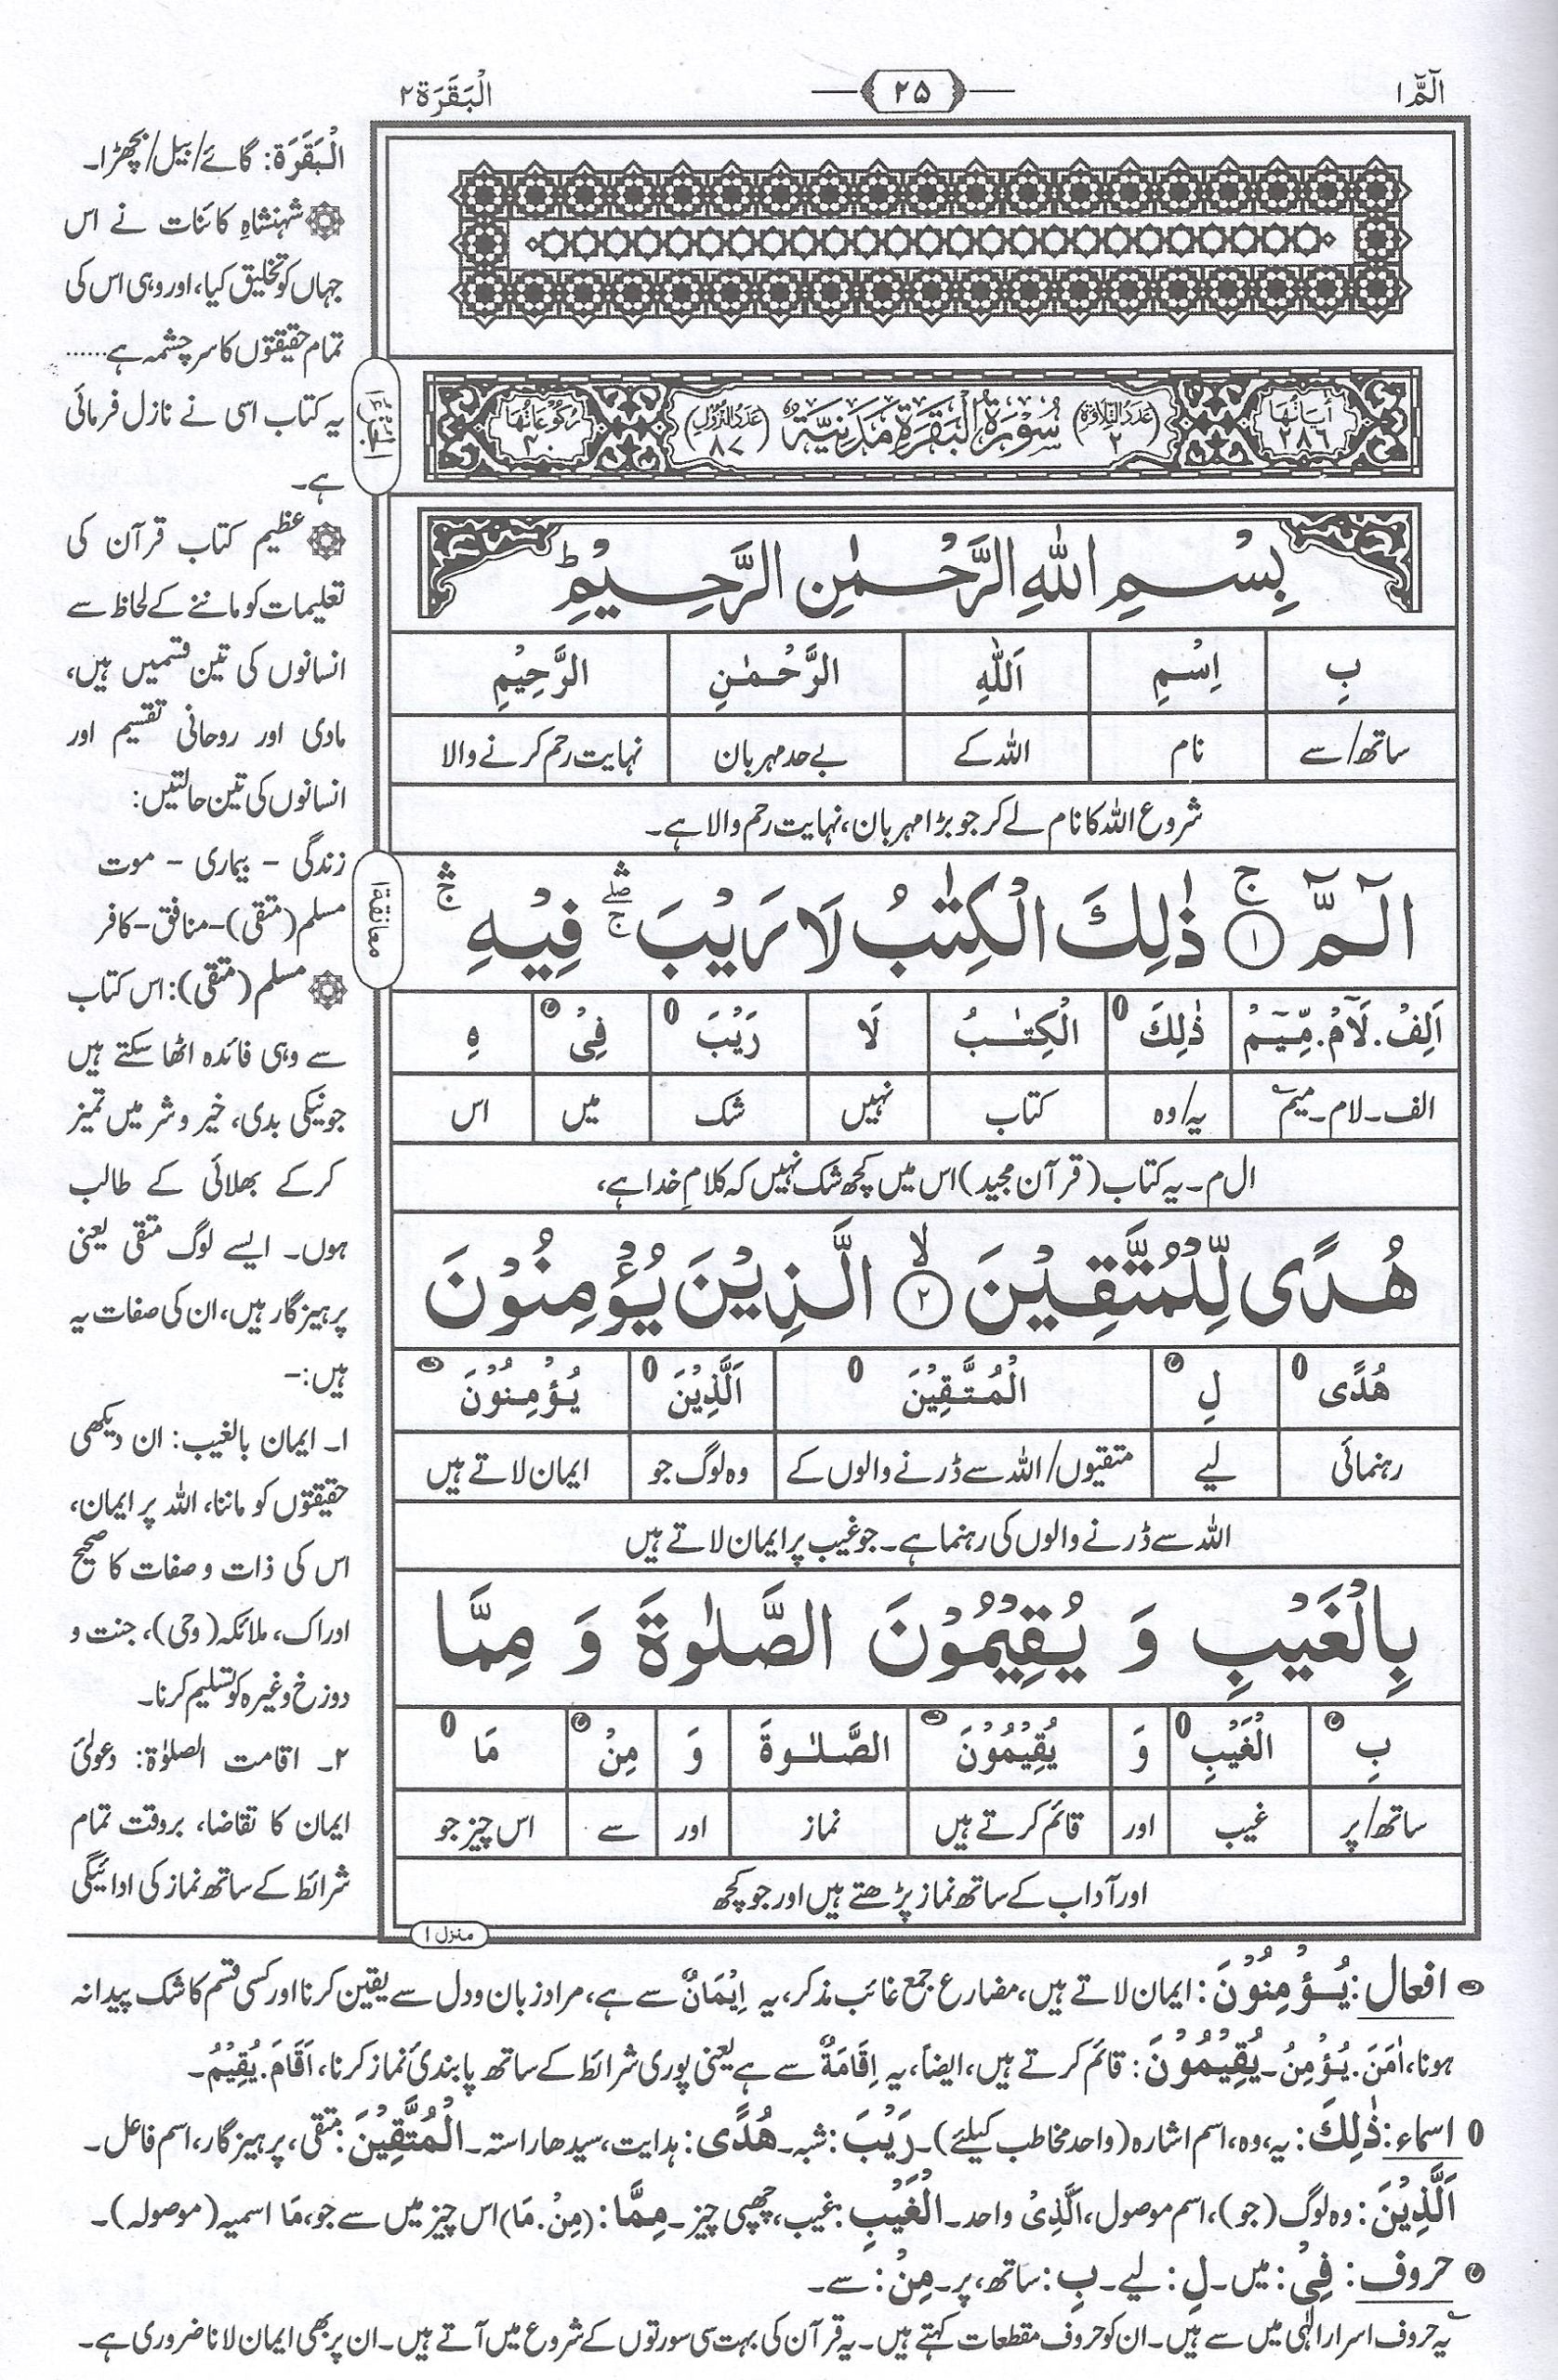 الٓمّٓ ۱
۲۵
الْبَقَرَة ۲
اٰیَاتُهَا ۲۸۶
(عَدَدُ التِّلَاوَةِ ۲) سُوْرَةُ الْبَقَرَةِ مَدَنِيَّةٌ (عَدَدُ النُّزُوْلِ ۸۷)
رُكُوْعَاتُهَا ۴۰
بِسْمِ اللّٰهِ الرَّحْمٰنِ الرَّحِيْمِ ؕ
بِ اِسْمِ اَللّٰهِ الرَّحْمٰنِ الرَّحِيْمِ
ساتھ/سے نام اللہ کے بے حد مہربان نہایت رحم کرنے والا
شروع اللہ کا نام لے کر جو بڑا مہربان، نہایت رحم والا ہے۔
الٓمّٓ ۚ ۱ ذٰلِكَ الْكِتٰبُ لَا رَيْبَ ۛۖۚ فِيْهِ ۛۚ
معانقة ۱
اَلِفْ. لَآمْ. مِّيٓمْ ذٰلِكَ الْكِتٰبُ لَا رَيْبَ فِيْ هِ
الف۔لام۔میم یہ/وہ کتاب نہیں شک میں اس
ال م۔ یہ کتاب (قرآن مجید) اس میں کچھ شک نہیں کہ کلامِ خدا ہے،
هُدًى لِّلْمُتَّقِيْنَ ۙ ۲ الَّذِيْنَ يُؤْمِنُوْنَ
هُدًى لِ الْمُتَّقِيْنَ اَلَّذِيْنَ يُؤْمِنُوْنَ
رہنمائی لیے متقیوں/اللہ سے ڈرنے والوں کے وہ لوگ جو ایمان لاتے ہیں
اللہ سے ڈرنے والوں کی رہنما ہے۔ جو غیب پر ایمان لاتے ہیں
بِالْغَيْبِ وَ يُقِيْمُوْنَ الصَّلٰوةَ وَ مِمَّا
بِ الْغَيْبِ وَ يُقِيْمُوْنَ الصَّلٰوةَ وَ مِنْ مَا
ساتھ/پر غیب اور قائم کرتے ہیں نماز اور سے اس چیز جو
اور آداب کے ساتھ نماز پڑھتے ہیں اور جو کچھ
منزل ۱
الْبَقَرَة: گائے/بیل/بچھڑا۔
شہنشاہِ کائنات نے اس
جہاں کو تخلیق کیا، اور وہی اس کی
تمام حقیقتوں کا سر چشمہ ہے......
یہ کتاب اسی نے نازل فرمائی
ہے۔
عظیم کتاب قرآن کی
تعلیمات کو ماننے کے لحاظ سے
انسانوں کی تین قسمیں ہیں،
مادی اور روحانی تقسیم اور
انسانوں کی تین حالتیں:
زندگی - بیماری - موت
مسلم (متقی)-منافق-کافر
مسلم (متقی): اس کتاب
سے وہی فائدہ اٹھا سکتے ہیں
جو نیکی بدی، خیر و شر میں تمیز
کرکے بھلائی کے طالب
ہوں۔ ایسے لوگ متقی یعنی
پرہیزگار ہیں، ان کی صفات یہ
ہیں:-
۱۔ ایمان بالغیب: ان دیکھی
حقیقتوں کو ماننا، اللہ پر ایمان،
اس کی ذات و صفات کا صحیح
ادراک، ملائکہ (وحی)، جنت و
دوزخ وغیرہ کو تسلیم کرنا۔
۲۔ اقامت الصلوٰۃ: دعوائے
ایمان کا تقاضا، بروقت تمام
شرائط کے ساتھ نماز کی ادائیگی
افعال: يُؤْمِنُوْنَ: ایمان لاتے ہیں، مضارع جمع غائب مذکر، یہ اِيْمَانٌ سے ہے، مراد زبان و دل سے یقین کرنا اور کسی قسم کا شک پیدا نہ
ہونا، اٰمَنَ. يُؤْمِنُ۔ يُقِيْمُوْنَ: قائم کرتے ہیں، ایضاً، یہ اِقَامَةٌ سے ہے یعنی پوری شرائط کے ساتھ پابندیٔ نماز کرنا، اَقَامَ. يُقِيْمُ۔
اسماء: ذٰلِكَ: یہ، وہ، اسم اشارہ (واحد مخاطب کیلئے)۔ رَيْبَ: شبہ۔ هُدًى: ہدایت، سیدھا راستہ۔ الْمُتَّقِيْنَ: متقی، پرہیزگار، اسم فاعل۔
اَلَّذِيْنَ: وہ لوگ (جو)، اسم موصول، اَلَّذِيْ واحد۔ الْغَيْبِ: غیب، چھپی چیز۔ مِمَّا: (مِنْ. مَا) اس چیز میں سے جو، مَا اسمیہ (موصولہ)۔
حروف: فِيْ: میں۔ لِ: لیے۔ بِ: ساتھ، پر۔ مِنْ: سے۔
یہ حروف اسرار الٰہی میں سے ہیں۔ ان کو حروف مقطعات کہتے ہیں۔ یہ قرآن کی بہت سی سورتوں کے شروع میں آتے ہیں۔ ان پر بھی ایمان لانا ضروری ہے۔